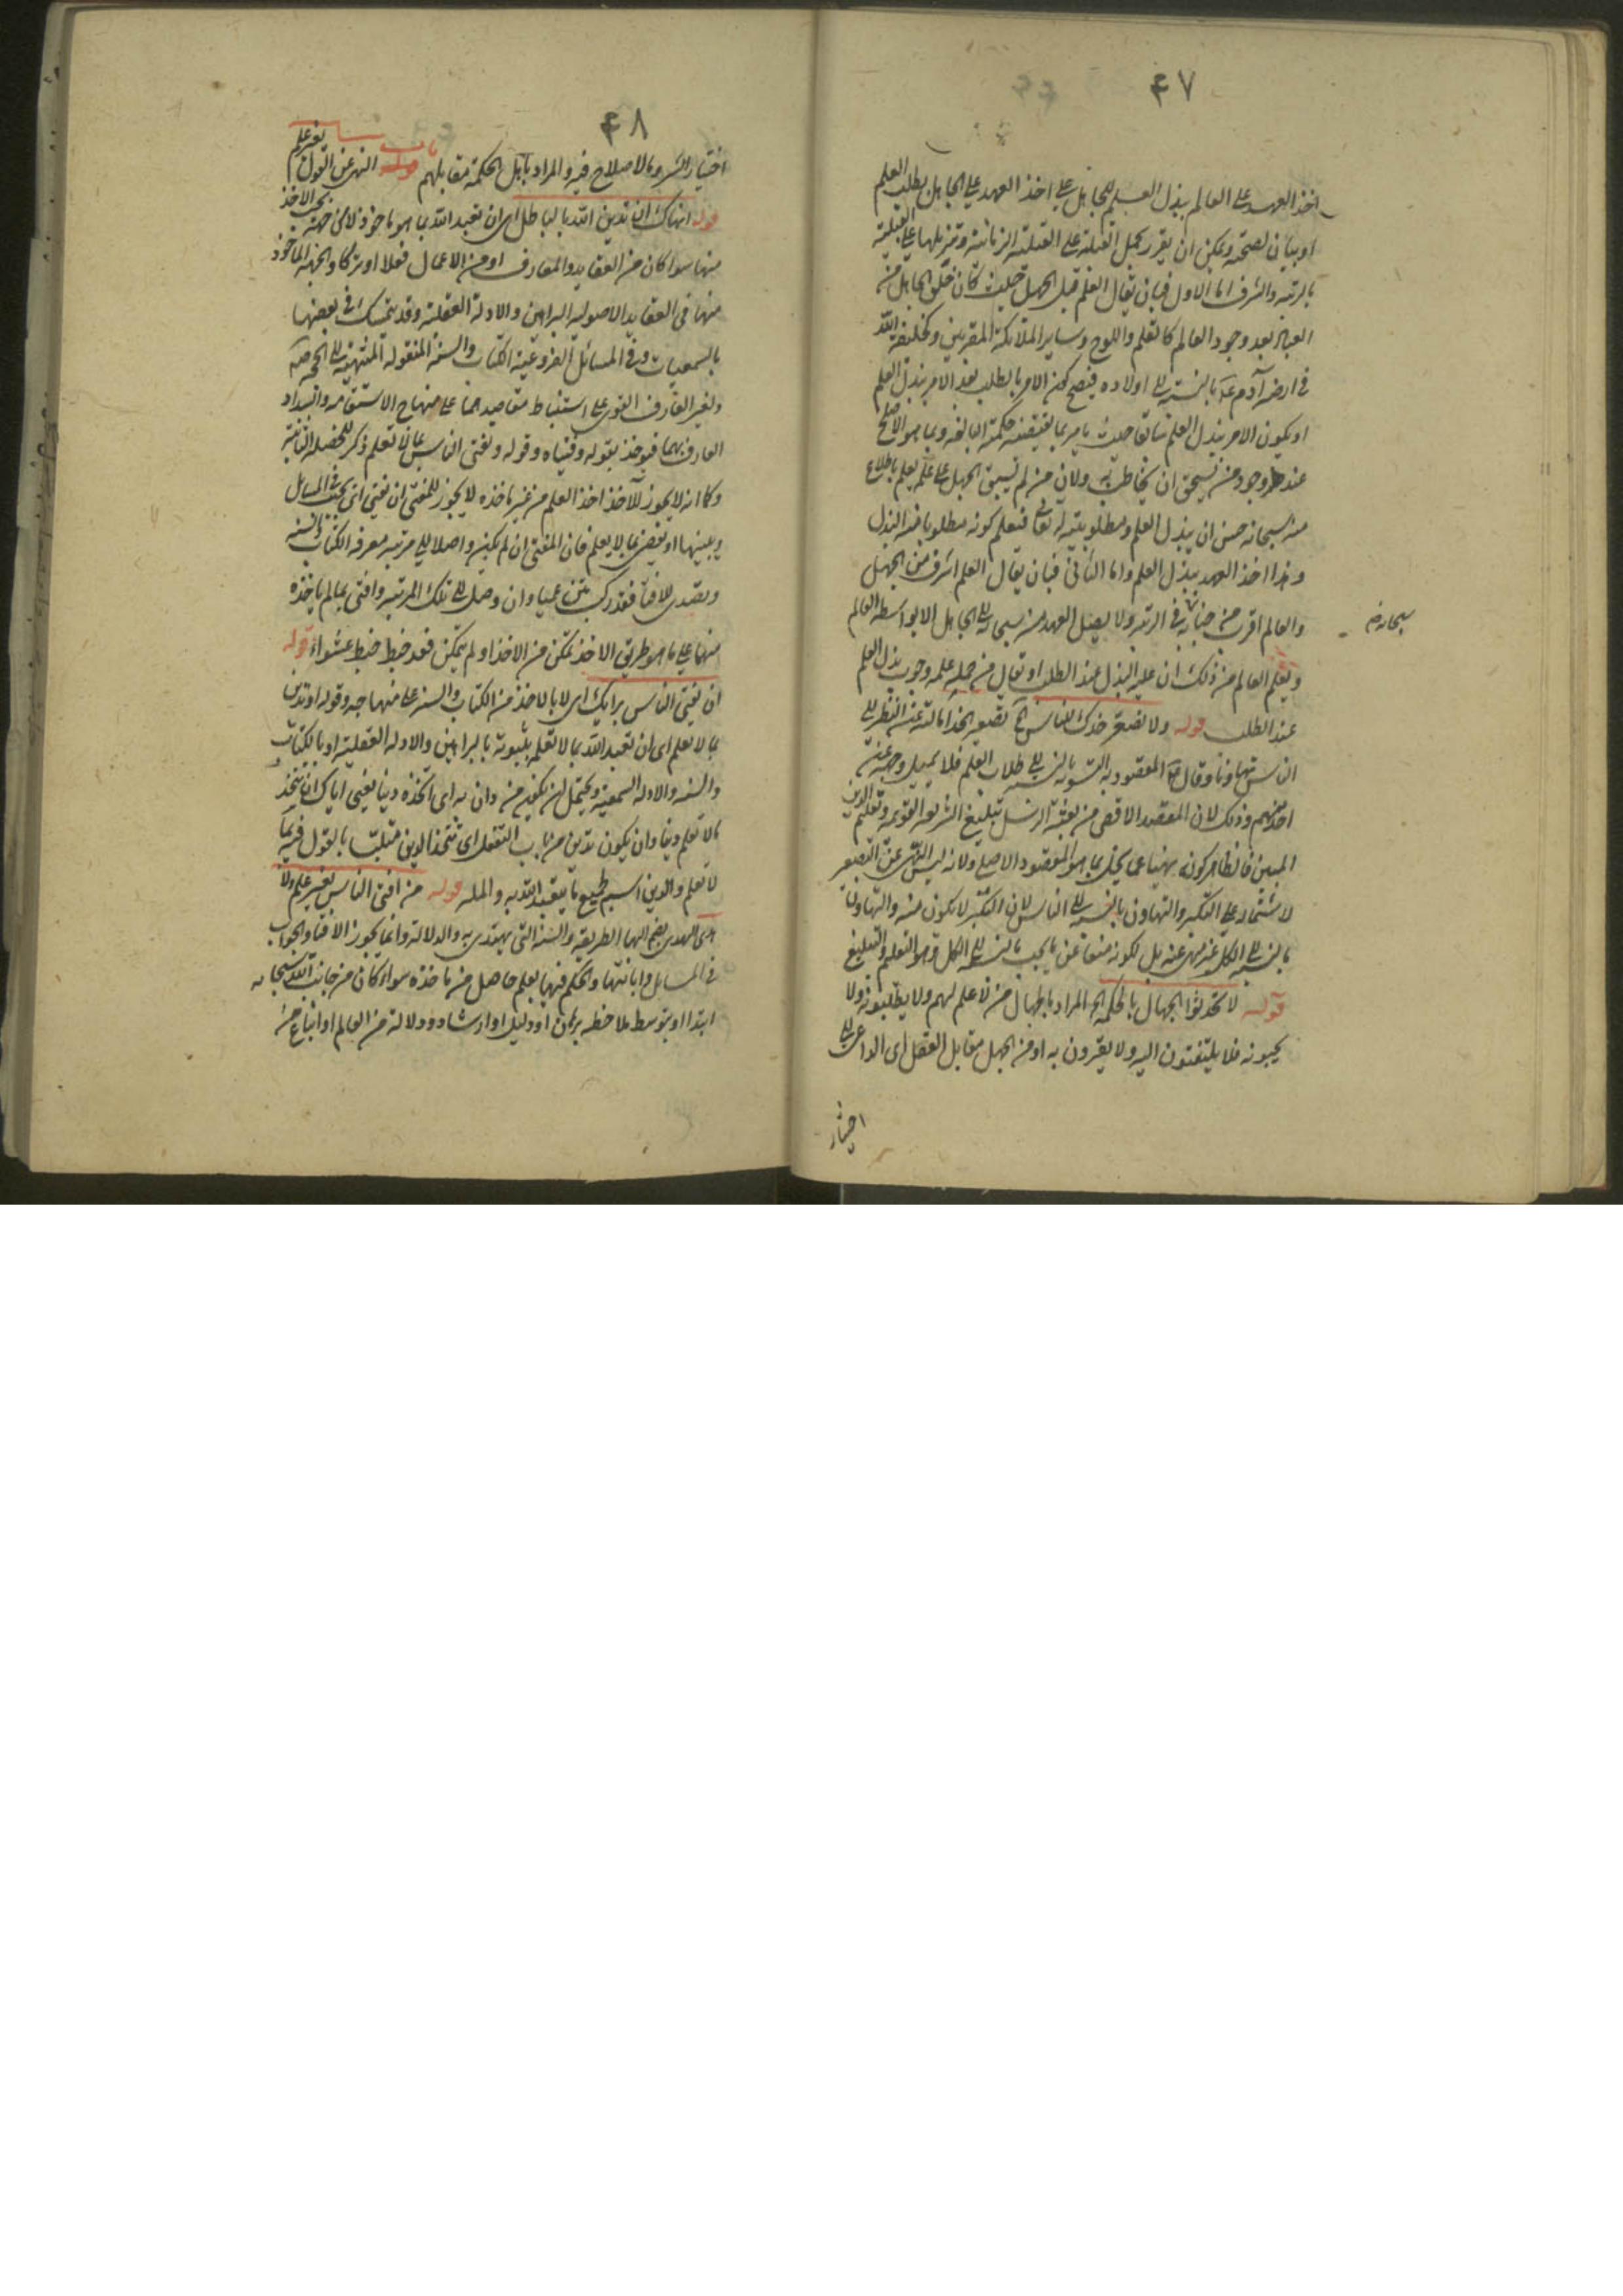 ۴۷
اخذ العهد على العالم ببذل العلم للجاهل على اخذ العهد على الجاهل بطلب العلم
او بيان لصحته ويمكن ان يقرر بحمل القبلية على القبلية الزمانية وتنزيلها على القبلية
بالرتبة والشرف اما الاول فبان يقال العلم قبل الجهل حيث كان خلق الجاهل من
العباد بعد وجود العالم كالقلم واللوح وساير الملائكة المقربين وكخليفة الله
في ارضه آدم بالنسبة الى اولاده فيصح كون الامر بالطلب بعد الامر ببذل العلم
او يكون الامر ببذل العلم سابقا حيث يامر بما يقتضيه حكمته البالغة وبما هو الاصلح
عند وجود من يستحق ان يخاطب به ولان من لم يسبق الجهل على علمه يعلم باطلاع
منه سبحانه حسن ان يبذل العلم ومطلوبيته له تعالى فيعلم كونه مطلوبا منه البذل
وهذا اخذ العهد ببذل العلم واما الثاني فبان يقال العلم اشرف من الجهل
والعالم اقرب من جنابه في الرتبة ولا يصل العهد من سبحانه الى الجاهل الا بواسطة العالم
سبحانه
ويعلم العالم من ذلك ان عليه البذل عند الطلب او يقال من جملة علمه وجوب بذل العلم
عند الطلب قوله ولا تصعر خدك للناس تصعير الخد امالته عن النظر الى
الناس تهاونا وقال المقصود به التسوية بالنسبة الى طلاب العلم فلا يميل وجهه عن
احد منهم وذلك لان المقصد الاقصى من بعثة الرسل تبليغ الشريعة القويمة وتعليم الدين
المبين فالظاهر كونه نهيا عما يخل بما هو المقصود الاصلي ولانه ليس النهي عن التصعير
لاشتماله على التكبر والتهاون بالنسبة الى الناس لان التكبر لا يكون منه والتهاون
بالنسبة الى الكل غير منهي عنه بل لكونه منعا عن ما يجب بالنسبة الى الكل وهو التعليم والتبليغ
قوله لا تحدثوا الجهال بالحكمة المراد بالجهال من لا علم لهم ولا يطلبونه ولا
يحبونه فلا يلتفتون اليه ولا يقرون به او من الجهل مقابل العقل اى الداعي الى
اختيار
۴۸
اختيار الشر وما لا صلاح فيه والمراد باهل الحكمة مقابلهم باب النهي عن القول بغير علم
قوله انهاك ان تدين الله بالباطل اى ان تعبد الله بما هو ماخوذ لا عن جهة يجب الاخذ
منها سواء كان من العقايد والمعارف او من الاعمال فعلا او تركا والجهة الماخوذ
منها في العقايد الاصولية البراهين والادلة العقلية وقد يتمسك في بعضها
بالسمعيات وفي المسائل الفروعية الكتاب والسنة المنقولة المنتهية الى الحجة
ولغير العارف القوي على استنباط مقاصدهما على منهاج الاستقامة والسداد
العارف بهما فيؤخذ بقوله وفتياه وقوله وتفتي الناس بما لا تعلم ذكر للخصلة الثانية
وكما انه لا يجوز للآخذ اخذ العلم من غير ماخذه لا يجوز للمفتي ان يفتي اى يجيب في المسايل
ويبينها او يقضي بما لا يعلم فان المفتي ان لم يكن واصلا الى مرتبة معرفة الكتاب والسنة
وتصدى للافتاء فقد ركب متن عمياء وان وصل الى تلك المرتبة وافتى بما لم ياخذه
منها على ما هو طريق الاخذ تمكن من الاخذ او لم يتمكن فقد خبط خبط عشواء قوله
ان تفتي الناس برايك اى لا بالاخذ من الكتاب والسنة على منهاجه وقوله او تدين
بما لا تعلم اى ان تعبد الله بما لا تعلم بثبوته بالبراهين والادلة العقلية او بالكتاب
والسنة والادلة السمعية ويحتمل ان يكون من دان به اى اتخذه دينا يعني اياك ان تتخذ
ما لا تعلم دينا وان يكون تدين من باب التفعل اى تتخذ الدين متلبسا بالقول فيه بما
لا تعلم والدين اسم لجميع ما يتعبد الله به والملة قوله من افتى الناس بغير علم ولا
هدى الهدى بضم الهاء الطريقة والسنة التي يهتدى به والدلالة وانما يجوز الافتاء والجواب
في المسايل وابانتها والحكم فيها بعلم حاصل من ماخذه سواء كان من جانب الله سبحانه
ابتداء او بتوسط ملاحظة برهان او دليل او ارشاد ودلالة من العالم او اتباع من